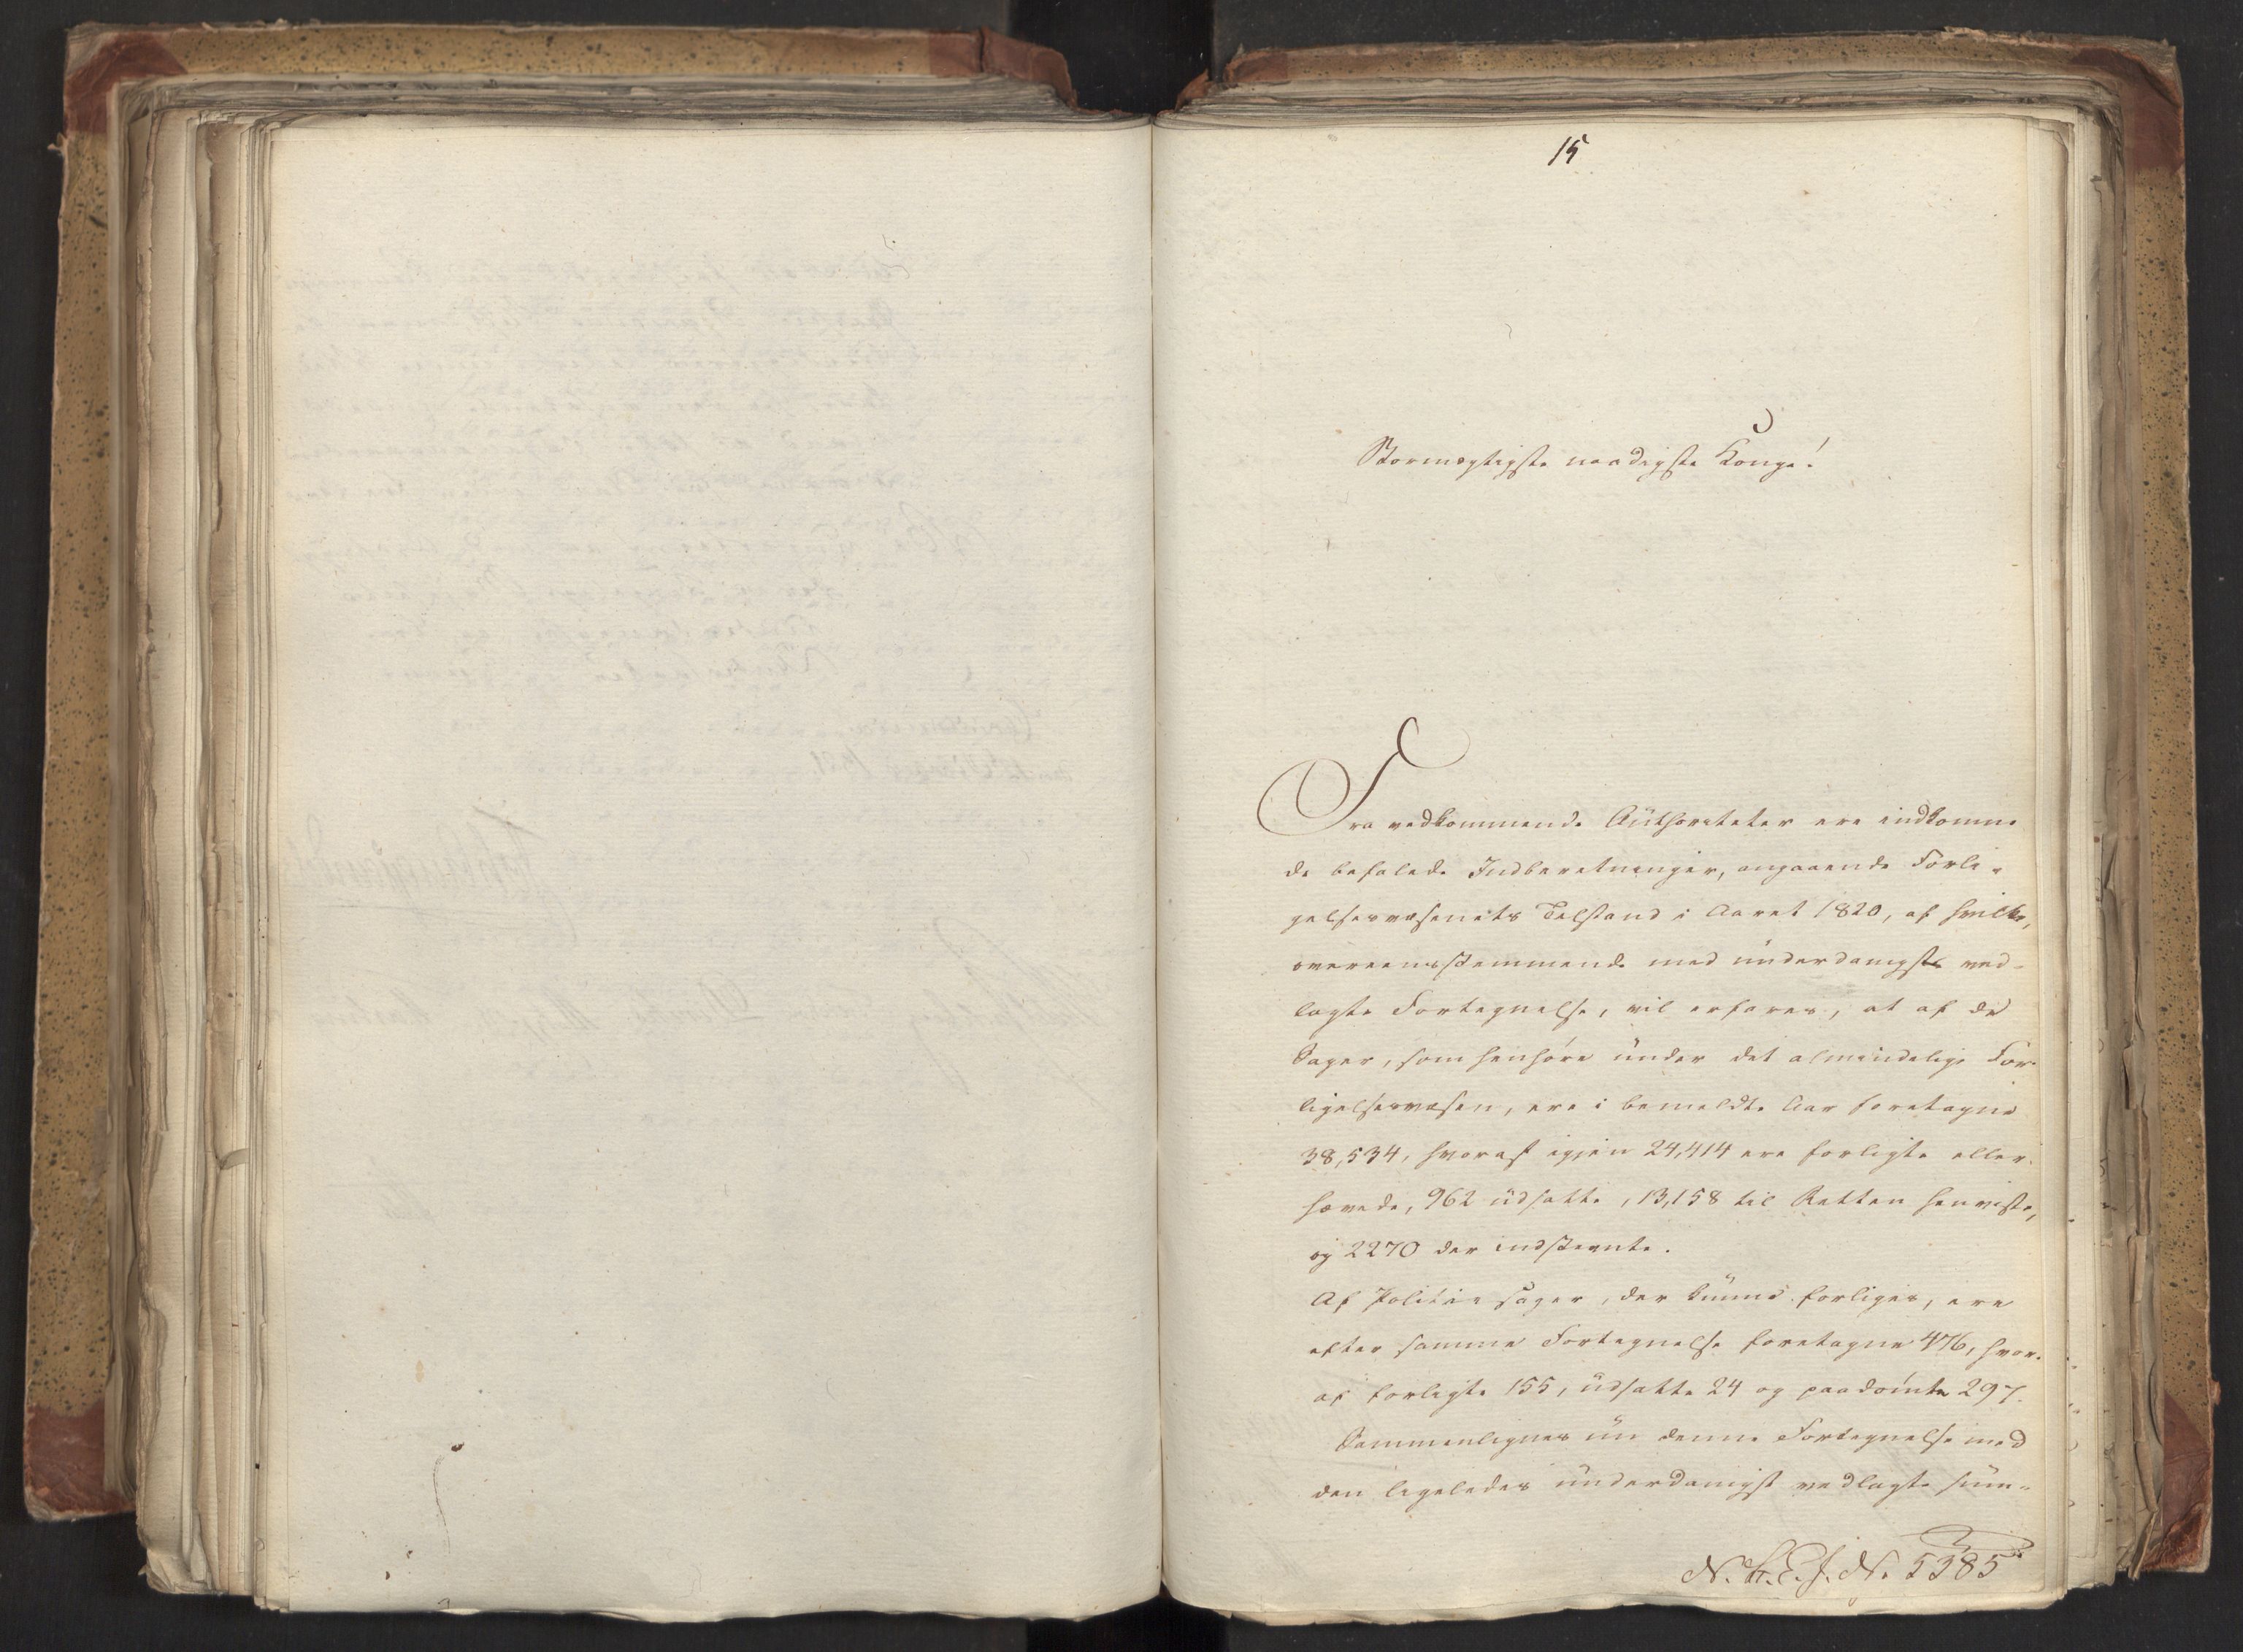 15
Stormægtigste naadigste Konge!
Fra vedkommende Authoriteter ere indkomne
de befalede Indberetninger, angaaende Forli-
gelsesvæsenets Tilstand i Aaret 1820, af hvilke,
overeensstemmende med underdanigst ved-
lagte Fortegnelse, vil erfares, at af de
Sager, som henhøre under det almindelige For-
ligelsesvæsen, ere i bemeldte Aar foretagne
38,534, hvoraf igjen 24,414 ere forligte eller
hævede, 962 udsatte, 13,158 til Retten henviste,
og 2270 der indstevnte.
Af Politiesager, der kunne forliges, ere
efter samme Fortegnelse foretagne 476, hvor-
af forligte 155, udsatte 24 og paadømte 297.
Sammenlignes nu denne Fortegnelse med
den ligeledes underdanigst vedlagte sum-
N. 5385